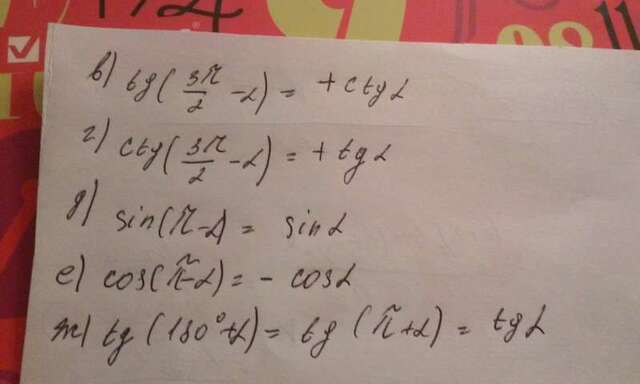 в) tg(3π/2 - α) = + ctg α
г) ctg(3π/2 - α) = + tg α
д) sin(π - α) = sin α
е) cos(π - α) = - cos α
ж) tg (180° + α) = tg (π + α) = tg α